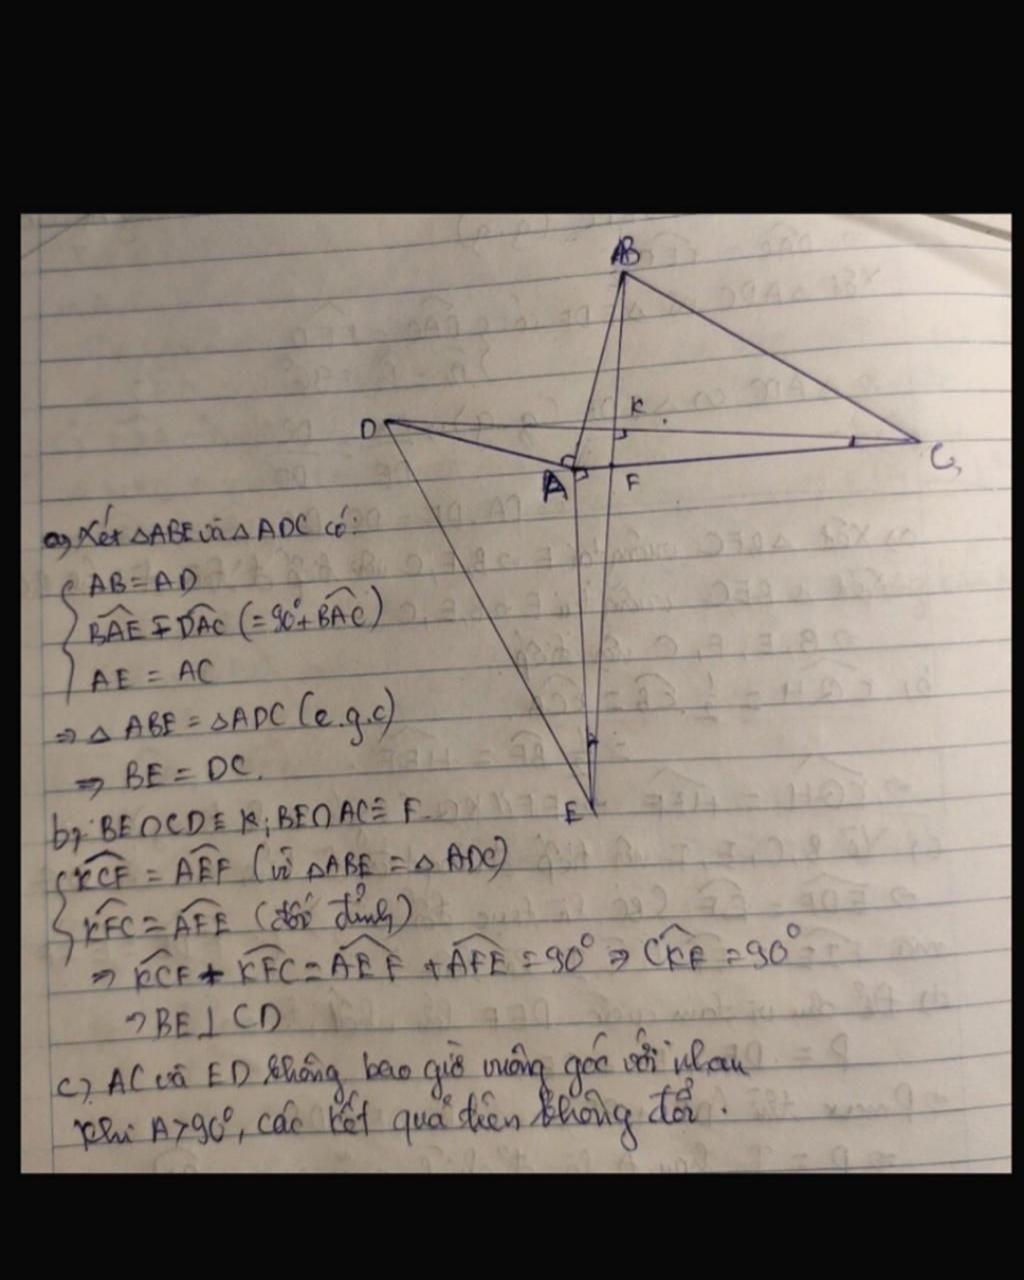 B
K
D
C
A
F
a, Xét △ABE và △ADC có:
AB = AD
BAE = DAC (= 90° + BAC)
AE = AC
⇒ △ ABE = △ADC (c.g.c)
⇒ BE = DC.
E
b, BE∩CD ≡ K; BE∩AC ≡ F.
KCF = AEF (vì △ABE = △ADC)
KFC = AFE (đối đỉnh)
⇒ KCF + KFC = AEF + AFE = 90° ⇒ CKF = 90°
⇒ BE ⊥ CD
c, AC và ED không bao giờ vuông góc với nhau
Khi A > 90°, các kết quả trên không đổi.